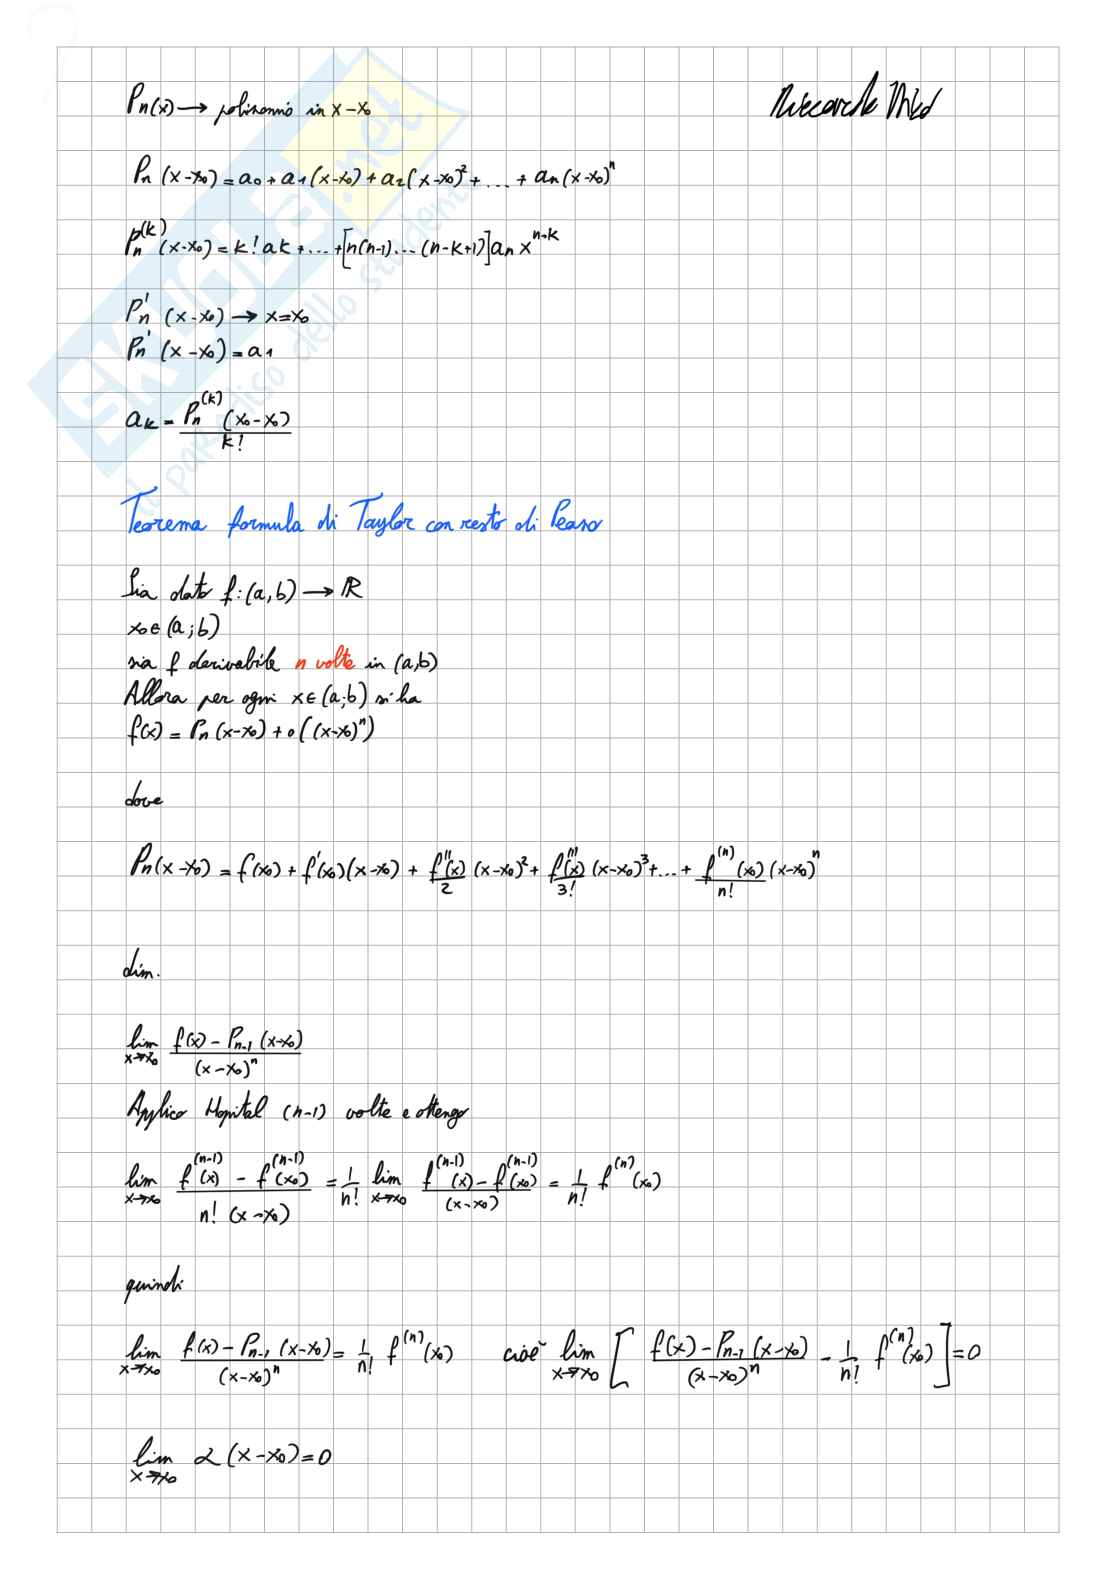 Pn(x) → polinomio in x-x₀
Riccardo
Pn (x-x₀) = a₀ + a₁ (x-x₀) + a₂ (x-x₀)² + ... + an (x-x₀)ⁿ
Pn⁽ᵏ⁾ (x-x₀) = k! ak + ... + [n(n-1)... (n-k+1)] an xⁿ⁻ᵏ
Pn' (x-x₀) → x=x₀
Pn' (x-x₀) = a₁
ak = Pn⁽ᵏ⁾ (x₀-x₀) / k!
SKUOLA.net
il paradiso dello studente
Teorema formula di Taylor con resto di Peano
Sia dato f: (a,b) → ℝ
x₀ ∈ (a;b)
sia f derivabile n volte in (a,b)
Allora per ogni x ∈ (a;b) si ha
f(x) = Pn (x-x₀) + o((x-x₀)ⁿ)
dove
Pn (x-x₀) = f(x₀) + f'(x₀)(x-x₀) + f''(x)/2 (x-x₀)² + f'''(x)/3! (x-x₀)³ + ... + f⁽ⁿ⁾(x₀)/n! (x-x₀)ⁿ
dim.
lim x→x₀ f(x) - Pn-1 (x-x₀) / (x-x₀)ⁿ
Applico Hopital (n-1) volte e ottengo
lim x→x₀ f⁽ⁿ⁻¹⁾(x) - f⁽ⁿ⁻¹⁾(x₀) / n! (x-x₀) = 1/n! lim x→x₀ f⁽ⁿ⁻¹⁾(x) - f⁽ⁿ⁻¹⁾(x₀) / (x-x₀) = 1/n! f⁽ⁿ⁾(x₀)
quindi
lim x→x₀ f(x) - Pn-1 (x-x₀) / (x-x₀)ⁿ = 1/n! f⁽ⁿ⁾(x₀) cioè lim x→x₀ [ f(x) - Pn-1 (x-x₀) / (x-x₀)ⁿ - 1/n! f⁽ⁿ⁾(x₀) ] = 0
lim x→x₀ α (x-x₀) = 0